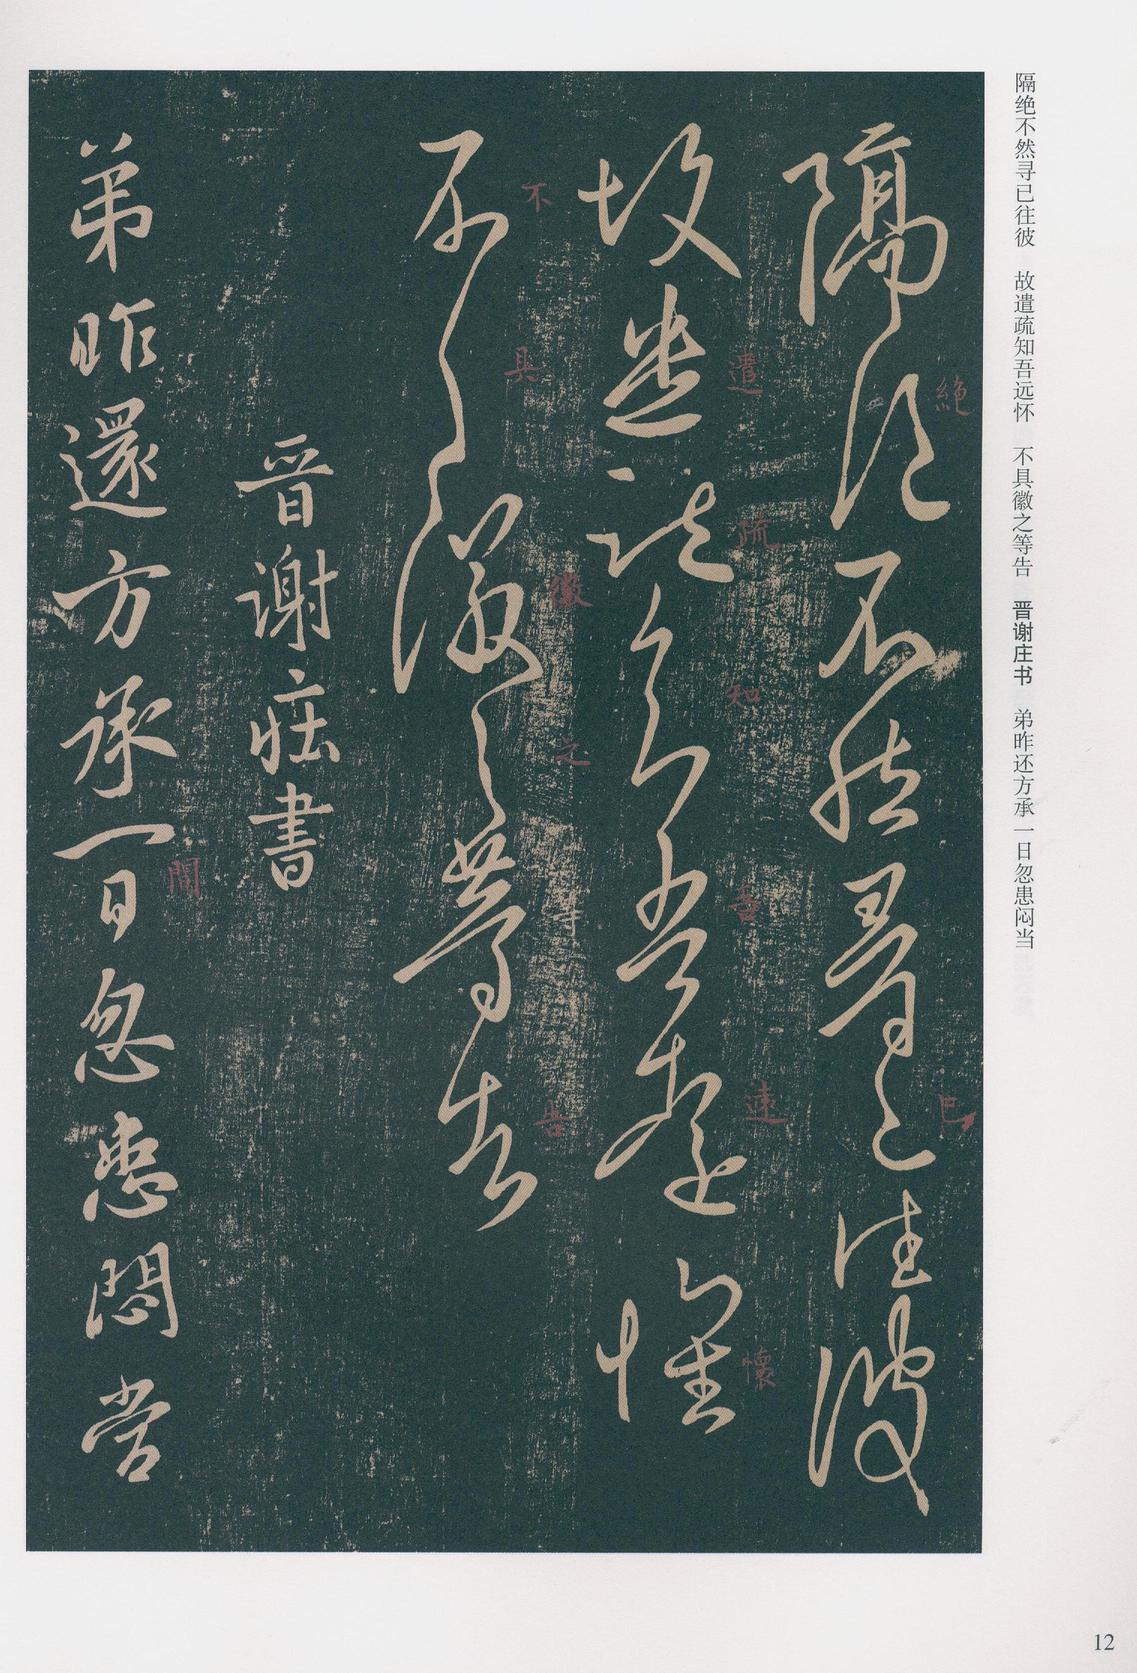 隔绝不然寻已往彼　故遣疏知吾远怀　不具徽之等告　晋谢庄书　弟昨还方承一日忽患闷当
隔絕不然尋已往彼
絕
已
故遣疏知吾遠懷
遣
疏
知
吾
遠
懷
不具徽之等告
不
具
徽
之
等
告
晉謝莊書
弟昨還方承一日忽患悶當
12